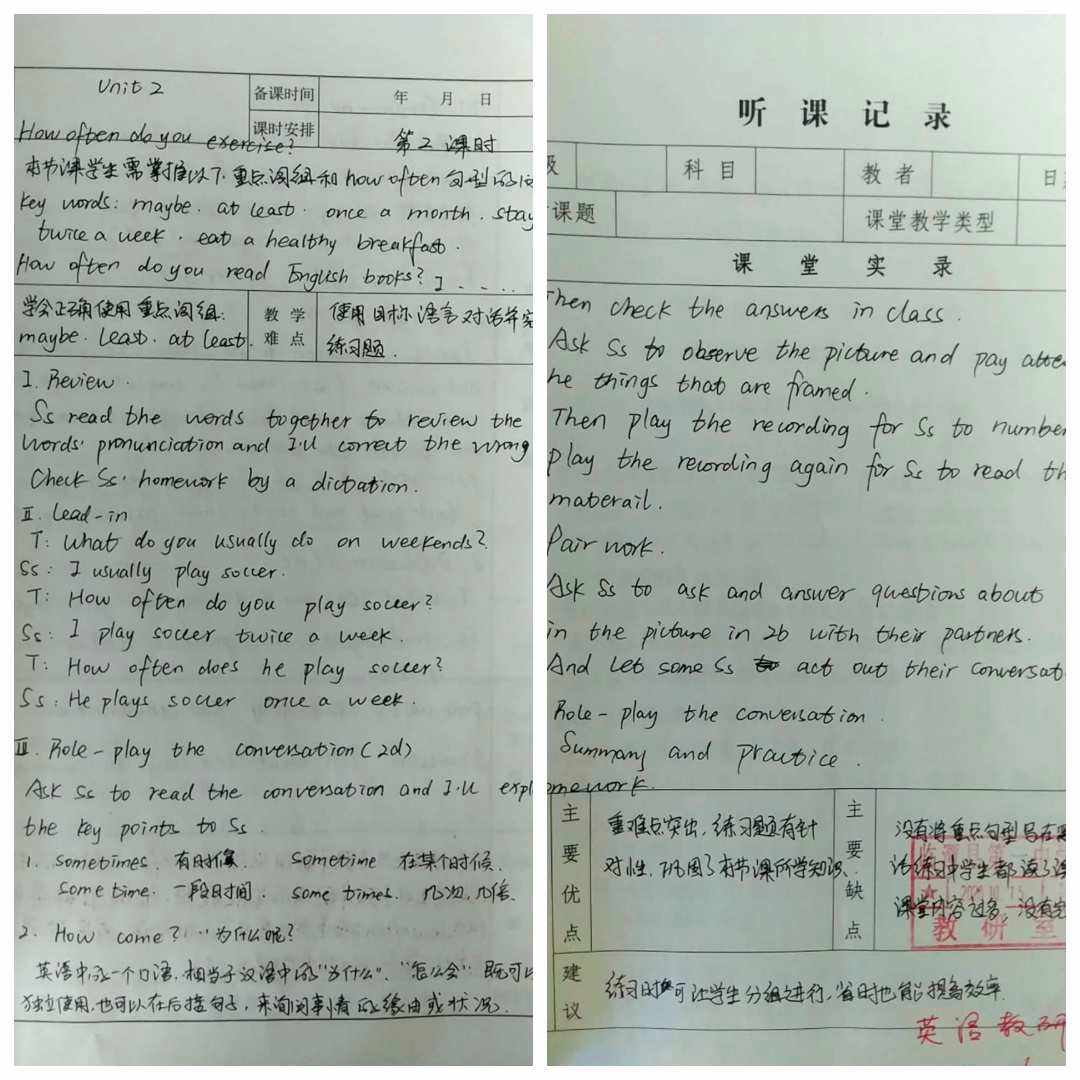 Unit 2
备课时间
年 月 日
How often do you exercise?
课时安排
第2课时
本节课学生需掌握以下重点词组和how often句型的
Key words: maybe. at least. once a month. stay
twice a week. eat a healthy breakfast.
How often do you read English books? I ....
学会正确使用重点词组:
maybe. least. at least.
教学
难点
使用目标语言对话并完
练习题.
I. Review.
Ss read the words together to review the
words' pronunciation and I'll correct the wrong
Check Ss' homework by a dictation.
II. Lead-in
T: What do you usually do on weekends?
Ss: I usually play soccer.
T: How often do you play soccer?
Ss: I play soccer twice a week.
T: How often does he play soccer?
Ss: He plays soccer once a week.
III. Role-play the conversation (2d)
Ask Ss to read the conversation and I'll expl
the key points to Ss.
1. sometimes. 有时候 sometime 在某个时候.
some time. 一段时间. some times. 几次,几倍.
2. How come? "为什么呢?
英语中的一个口语,相当于汉语中的"为什么"、"怎么会" 既可以
独立使用,也可以在后接句子,来询问事情的缘由或状况.
听课记录
级
科目
教者
日
课题
课堂教学类型
课堂实录
Then check the answers in class.
Ask Ss to observe the picture and pay atte
he things that are framed.
Then play the recording for Ss to number
Play the recording again for Ss to read th
materail.
Pair work.
Ask Ss to ask and answer questions about
in the picture in 2b with their partners.
And let some Ss act out their conversat
Role-play the conversation.
Summary and practice.
omework.
主要优点
重难点突出,练习题有针
对性,巩固了本节课所学知识.
主要缺点
没有将重点句型写在黑
练习中学生都
课堂内容过多,没有完
教研室
建议
练习时可让学生分组进行,省时也能提高效率.
英语教研